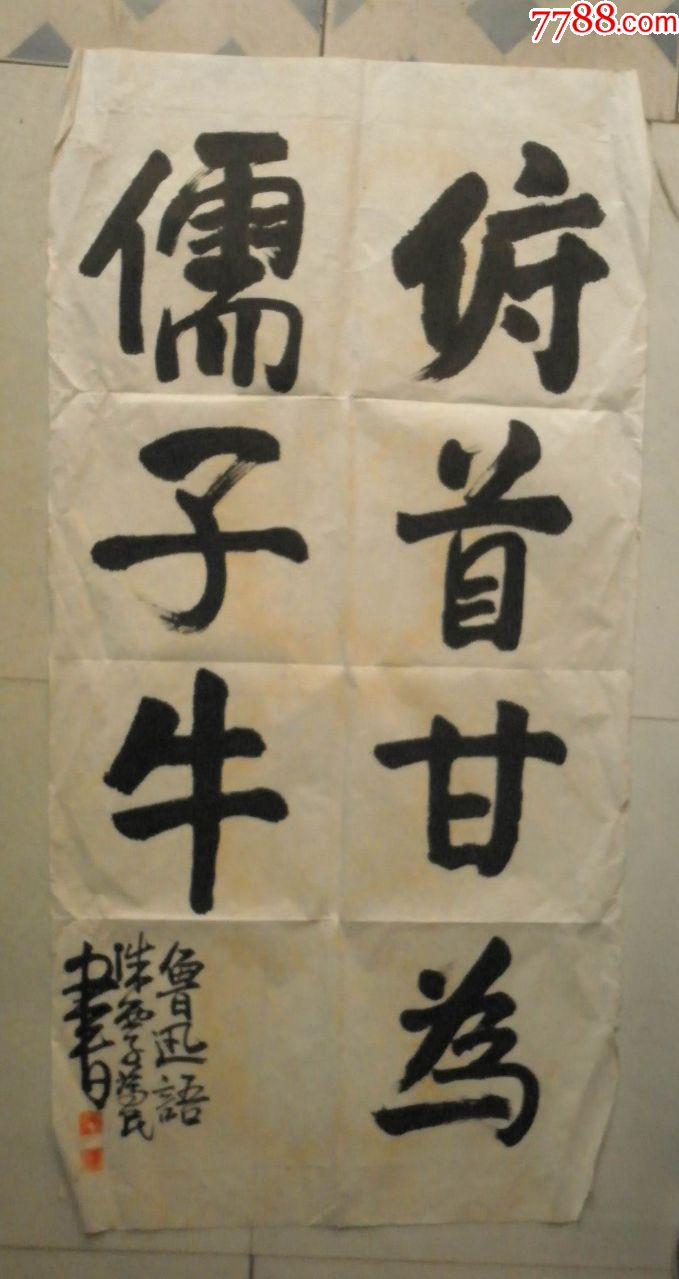 7788.com
俯首甘為
儒子牛
魯迅語
書